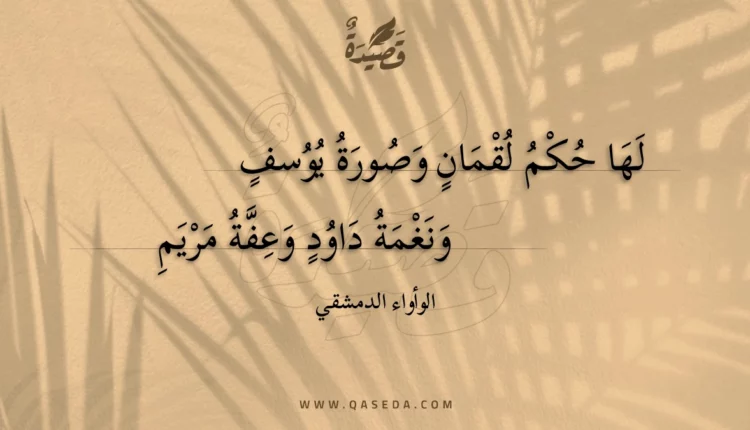 قَصِيدَةٌ
لَهَا حُكْمُ لُقْمَانٍ وَصُورَةُ يُوُسفٍ
وَنَغْمَةُ دَاوُدٍ وَعِفَّةُ مَرْيَمِ
الوأواء الدمشقي
WWW.QASEDA.COM